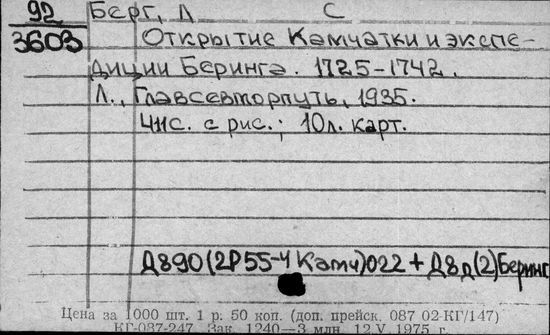 92 Берг, Л С
3603 Открытие Камчатки и экспе-
диции Беринга. 1725-1742.
Л., Главсевморпуть, 1935.
411с. с рис.; 10л. карт.
Д890(2Р55-4 Камч)022 + Д8д(2)Беринг
Цена за 1000 шт. 1 р. 50 коп. (доп. прейск. 087 02-КГ/147)
КГ-087-247 Зак. 1240—3 млн. 12.V.1975 г.